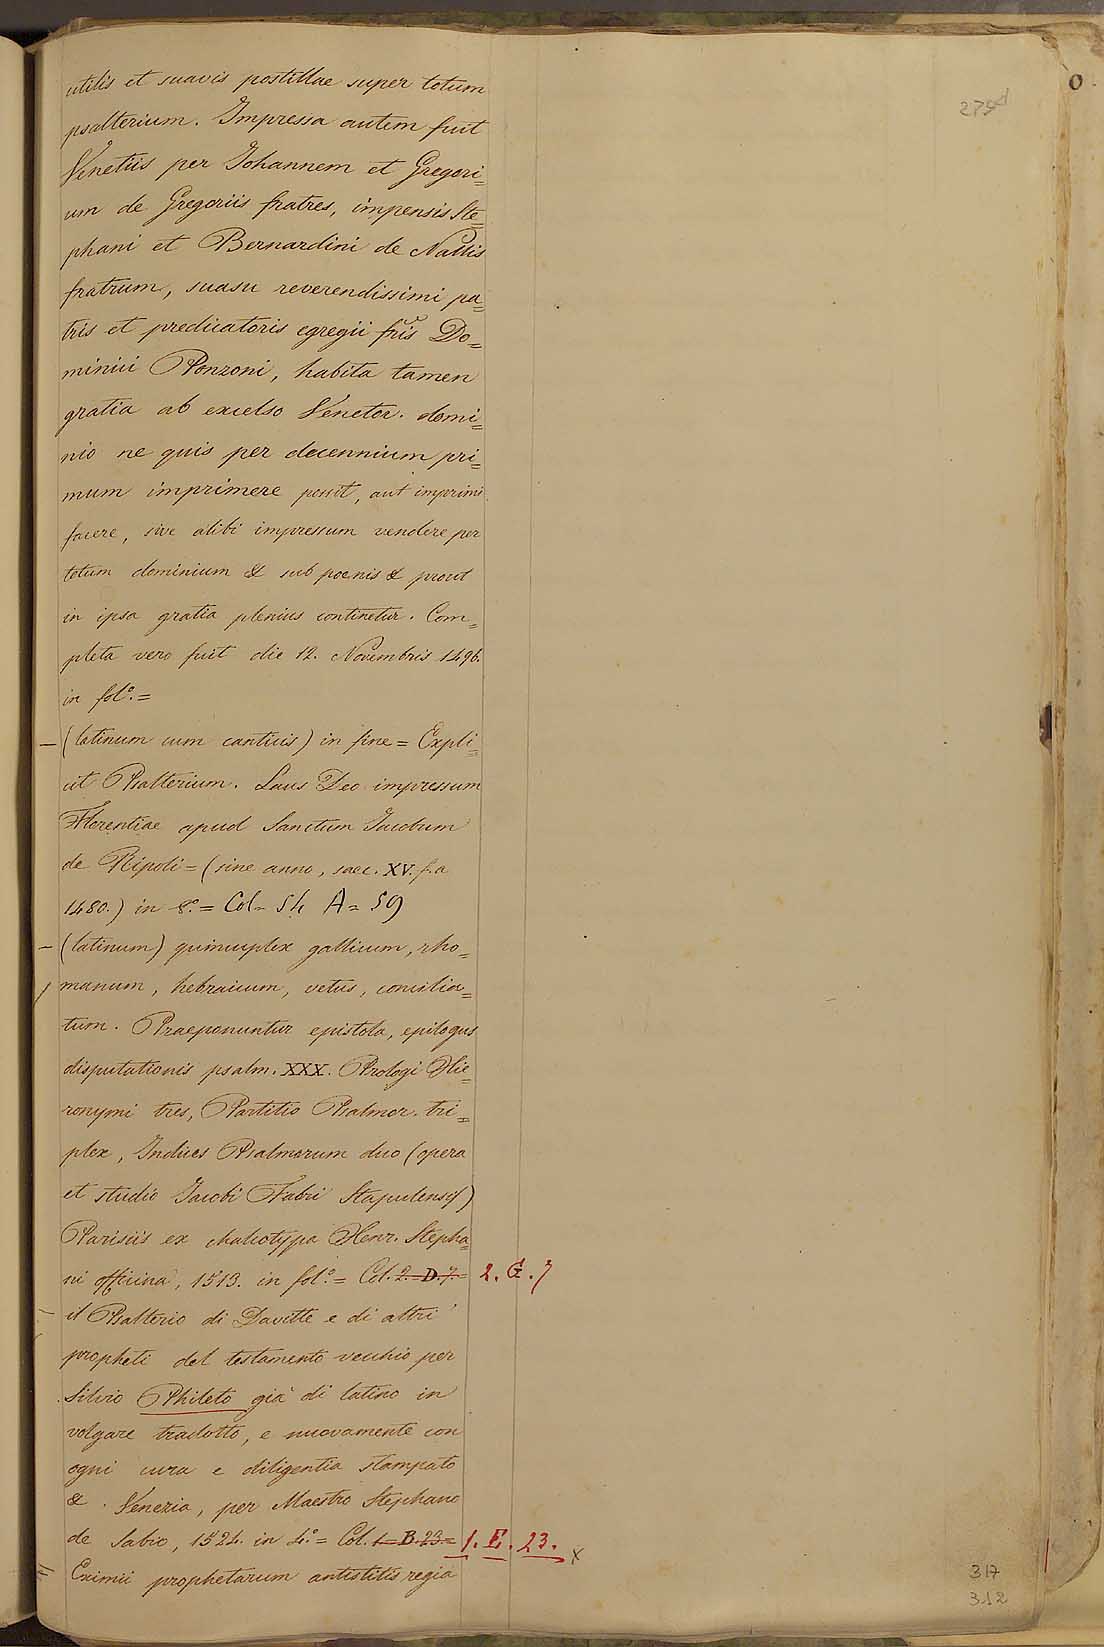 utilis et suavis postillae super totum
psalterium. Impressa autem fuit
Venetiis per Johannem et Gregori=
um de Gregoriis fratres, impensis Ste=
phani et Bernardini de Nallis
fratrum, suasu reverendissimi pa=
tris et predicatoris egregii fris Do=
minici Ponzoni, habita tamen
gratia ab excelso Venetor. domi=
nio ne quis per decennium pri=
mum imprimere possit, aut imprimi
facere, sive alibi impressum vendere per
totum dominium & sub poenis & prout
in ipsa gratia plenius continetur. Com=
pleta vero fuit die 12. Novembris 1496.
in fol.º =
— (latinum cum canticis) in fine = Expli=
cit Psalterium. Laus Deo impressum
Florentiae apud Sanctum Jacobum
de Ripoli = (sine anno, saec. XV. f.a
1480.) in 8.º = Col. 54 A = 59
— (latinum) quincuplex gallicum, rho=
manum, hebraicum, vetus, concilia=
tum. Praeponuntur epistola, epilogus
disputationis psalm. XXX. Prologi Hie=
ronymi tres, Partitio Psalmor. tri=
plex, Indices Psalmorum duo (opera
et studio Jacobi Fabri Stapulensis)
Parisiis ex chalcotypa Henr. Stepha=
ni officina, 1513. in fol.º = Col. 2. D. 7. = 2. G. 7
— il Psalterio di Davitte e di altri
propheti del testamento vecchio per
Silvio Phileto già di latino in
volgare tradotto, e nuovamente con
ogni cura e diligentia stampato
&. Venezia, per Maestro Stephano
de Sabio, 1524. in 4.º = Col. 1. B. 23 = 1. E. 23. x
= Eximii prophetarum antistitis regia
317
312